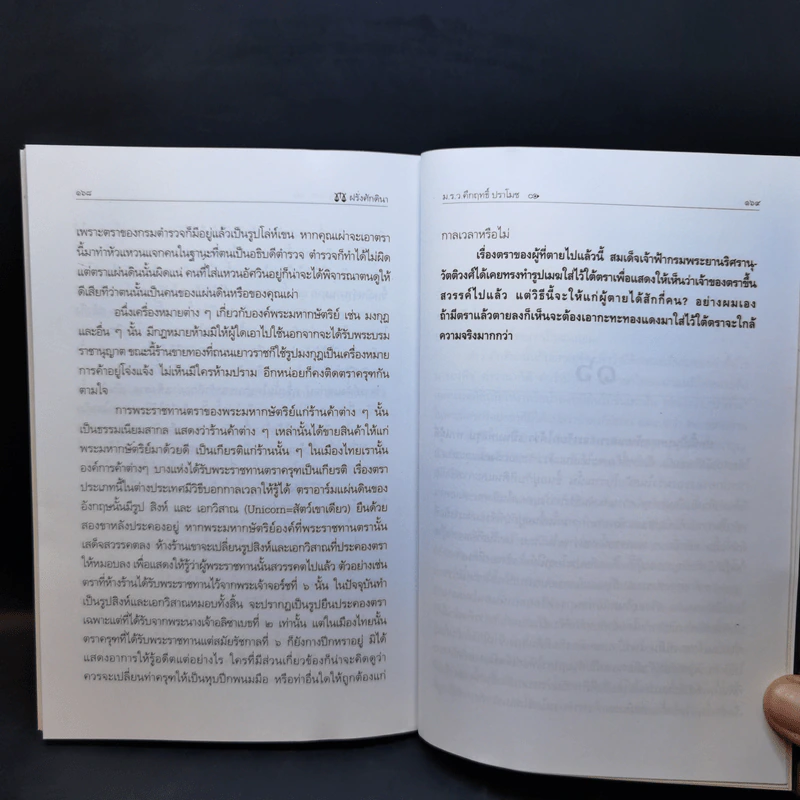 ๑๖๘
ฝรั่งศักดินา
เพราะตราของกรมตำรวจก็มีอยู่แล้วเป็นรูปโล่ห์เขน หากคุณเผ่าจะเอาตรา
นี้มาทำหัวแหวนแจกคนในฐานะที่ตนเป็นอธิบดีตำรวจ ตำรวจก็ทำได้ไม่ผิด
แต่ตราแผ่นดินนั้นผิดแน่ คนที่ใส่แหวนอัศวินอยู่ก็น่าจะได้พิจารณาตนดูให้
ดีเสียทีว่าตนนั้นเป็นคนของแผ่นดินหรือของคุณเผ่า
อนึ่งเครื่องหมายต่าง ๆ เกี่ยวกับองค์พระมหากษัตริย์ เช่น มงกุฎ
และอื่น ๆ นั้น มีกฎหมายห้ามมิให้ผู้ใดเอาไปใช้นอกจากจะได้รับพระบรม
ราชานุญาต ขณะนี้ร้านขายทองที่ถนนเยาวราชก็ใช้รูปมงกุฎเป็นเครื่องหมาย
การค้าอยู่โจ่งแจ้ง ไม่เห็นมีใครห้ามปราม อีกหน่อยก็คงติดตราครุฑกัน
ตามใจ
การพระราชทานตราของพระมหากษัตริย์แก่ร้านค้าต่าง ๆ นั้น
เป็นธรรมเนียมสากล แสดงว่าร้านค้าต่าง ๆ เหล่านั้นได้ขายสินค้าให้แก่
พระมหากษัตริย์มาด้วยดี เป็นเกียรติแก่ร้านนั้น ๆ ในเมืองไทยเรานั้น
องค์การค้าต่างๆ บางแห่งได้รับพระราชทานตราครุฑเป็นเกียรติ เรื่องตรา
ประเภทนี้ในต่างประเทศมีวิธีบอกกาลเวลาให้รู้ได้ ตราอาร์มแผ่นดินของ
อังกฤษนั้นมีรูป สิงห์ และ เอกวิสาณ (Unicorn=สัตว์เขาเดียว) ยืนด้วย
สองขาหลังประคองอยู่ หากพระมหากษัตริย์องค์ที่พระราชทานตรานั้น
เสด็จสวรรคตลง ห้างร้านเขาจะเปลี่ยนรูปสิงห์และเอกวิสาณที่ประคองตรา
ให้หมอบลง เพื่อแสดงให้รู้ว่าผู้พระราชทานนั้นสวรรคตไปแล้ว ตัวอย่างเช่น
ตราที่ห้างร้านได้รับพระราชทานไว้จากพระเจ้าจอร์ชที่ ๖ นั้น ในปัจจุบันทำ
เป็นรูปสิงห์และเอกวิสาณหมอบทั้งสิ้น จะปรากฏเป็นรูปยืนประคองตรา
เฉพาะแต่ที่ได้รับจากพระนางเจ้าอลิซาเบธที่ ๒ เท่านั้น แต่ในเมืองไทยนั้น
ตราครุฑที่ได้รับพระราชทานแต่สมัยรัชกาลที่ ๖ ก็ยังกางปีกหราอยู่ มิได้
แสดงอาการให้รู้อดีตแต่อย่างไร ใครที่มีส่วนเกี่ยวข้องก็น่าจะคิดดูว่า
ควรจะเปลี่ยนท่าครุฑให้เป็นหุบปีกพนมมือ หรือท่าอื่นใดให้ถูกต้องแก่
ม.ร.ว คึกฤทธิ์ ปราโมช
๑๖๙
กาลเวลาหรือไม่
เรื่องตราของผู้ที่ตายไปแล้วนี้ สมเด็จเจ้าฟ้ากรมพระยานริศรานุ-
วัตติวงศ์ได้เคยทรงทำรูปเมฆใส่ไว้ใต้ตราเพื่อแสดงให้เห็นว่าเจ้าของตราขึ้น
สวรรค์ไปแล้ว แต่วิธีนี้จะให้แก่ผู้ตายได้สักกี่คน? อย่างผมเอง
ถ้ามีตราแล้วตายลงก็เห็นจะต้องเอากะทะทองแดงมาใส่ไว้ใต้ตราจะใกล้
ความจริงมากกว่า